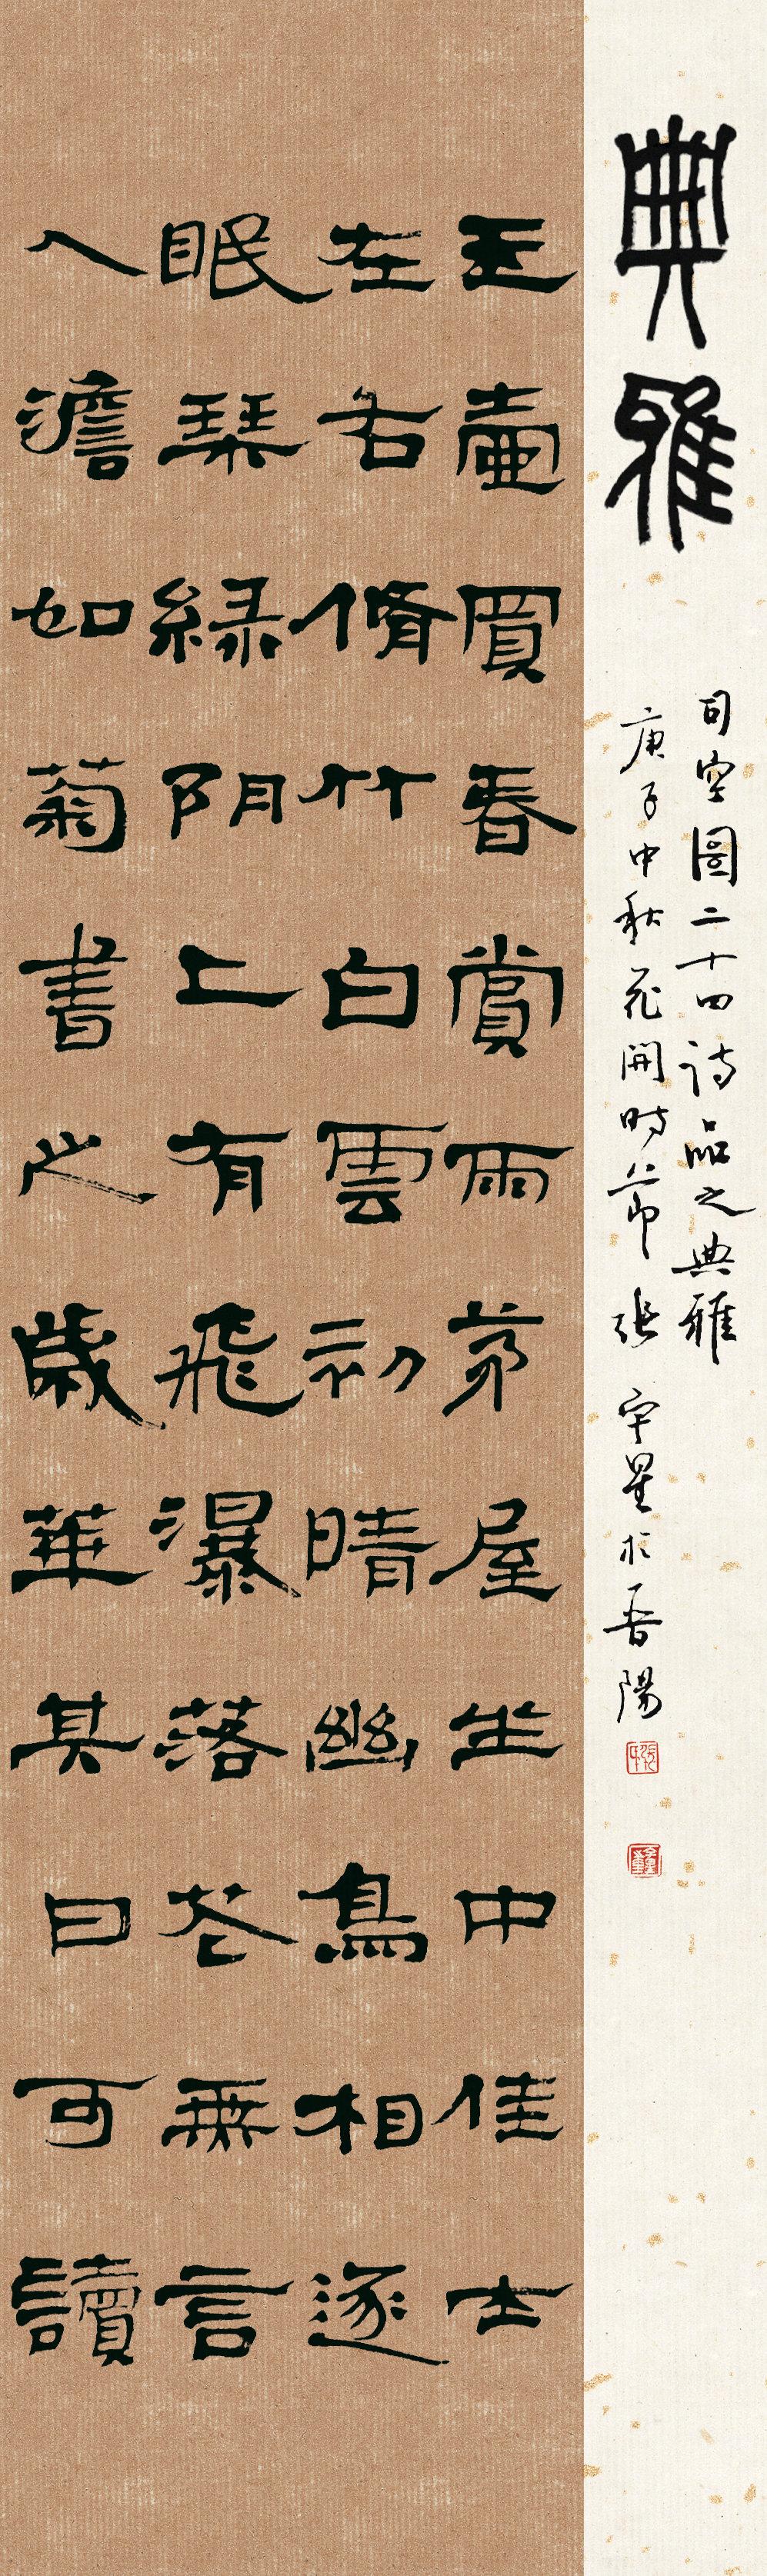 典雅
司空圖二十四詩品之典雅
庚子中秋花開時節張宇星於晉陽
玉壺買春賞雨茅屋坐中佳士
左右脩竹白雲初晴幽鳥相逐
眠琴綠阴上有飛瀑落花無言
人澹如菊書之歲華其曰可讀